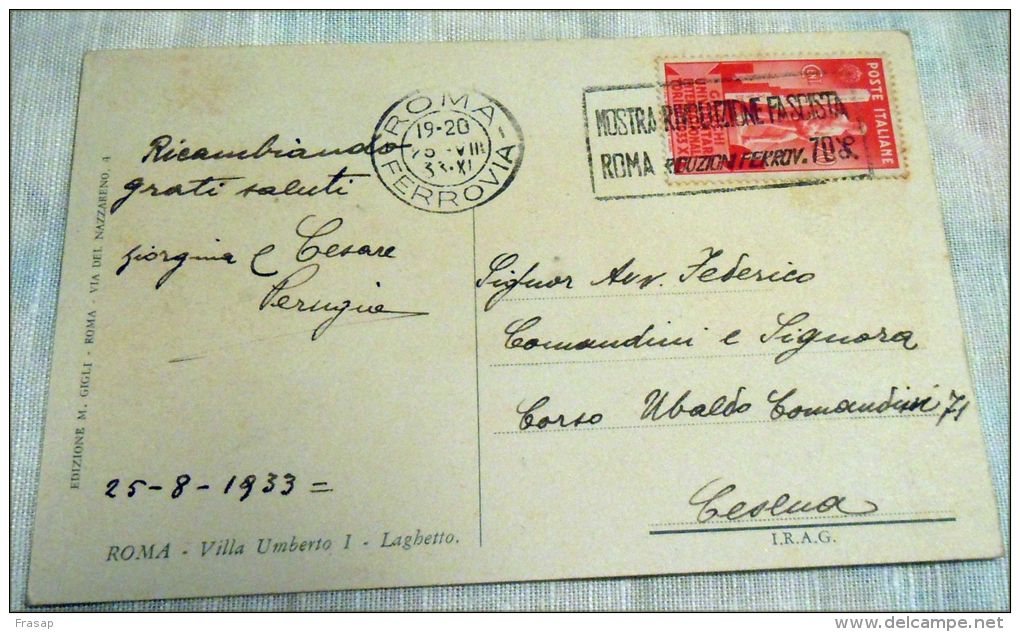 EDIZIONE M. GIGLI - ROMA - VIA DEL NAZZARENO, 4
Ricambiando
grati saluti
Giorgina e Cesare
Perugia
25-8-1933 =
ROMA - Villa Umberto I - Laghetto.
ROMA -
19-20
25 VIII
33·XI
FERROVIA
POSTE ITALIANE
MOSTRA RIVOLUZIONE FASCISTA
ROMA RIDUZIONI FERROV. 70%
Signor Avv. Federico
Comandini e Signora
Corso Ubaldo Comandini 71
Cesena
I.R.A.G.
Frasap
delcampe.net